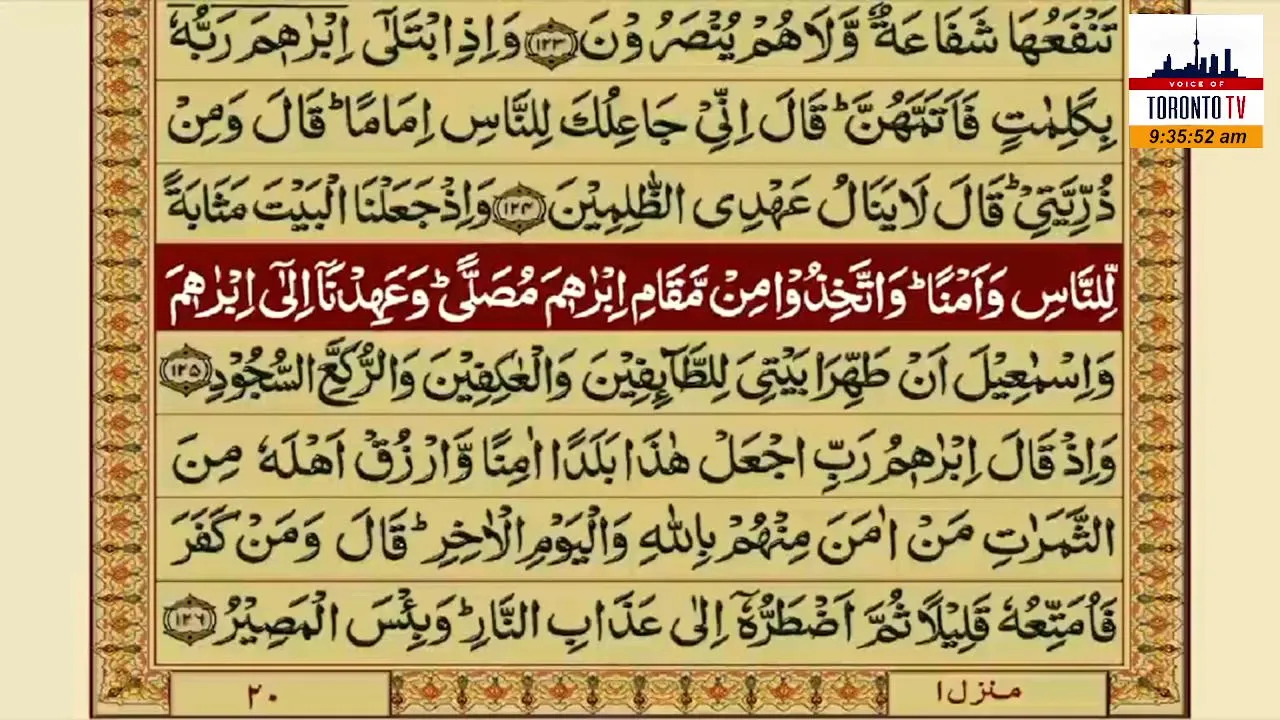 تَنْفَعُهَا شَفَاعَةٌ وَّلَا هُمْ يُنْصَرُوْنَ ﴿۱۲۳﴾ وَاِذِ ابْتَلٰٓى اِبْرٰهٖمَ رَبُّهٗ
بِكَلِمٰتٍ فَاَتَمَّهُنَّ ؕ قَالَ اِنِّىْ جَاعِلُكَ لِلنَّاسِ اِمَامًا ؕ قَالَ وَمِنْ
ذُرِّيَّتِىْ ؕ قَالَ لَا يَنَالُ عَهْدِى الظّٰلِمِيْنَ ﴿۱۲۴﴾ وَاِذْ جَعَلْنَا الْبَيْتَ مَثَابَةً
لِّلنَّاسِ وَاَمْنًا ؕ وَاتَّخِذُوْا مِنْ مَّقَامِ اِبْرٰهٖمَ مُصَلًّى ؕ وَعَهِدْنَاۤ اِلٰٓى اِبْرٰهٖمَ
وَاِسْمٰعِيْلَ اَنْ طَهِّرَا بَيْتِىَ لِلطَّآئِفِيْنَ وَالْعٰكِفِيْنَ وَالرُّكَّعِ السُّجُوْدِ ﴿۱۲۵﴾
وَاِذْ قَالَ اِبْرٰهٖمُ رَبِّ اجْعَلْ هٰذَا بَلَدًا اٰمِنًا وَّارْزُقْ اَهْلَهٗ مِنَ
الثَّمَرٰتِ مَنْ اٰمَنَ مِنْهُمْ بِاللّٰهِ وَالْيَوْمِ الْاٰخِرِ ؕ قَالَ وَمَنْ كَفَرَ
فَاُمَتِّعُهٗ قَلِيْلًا ثُمَّ اَضْطَرُّهٗۤ اِلٰى عَذَابِ النَّارِ ؕ وَبِئْسَ الْمَصِيْرُ ﴿۱۲۶﴾
منزل ۱
۲۰
VOICE OF
TORONTO TV
9:35:52 am